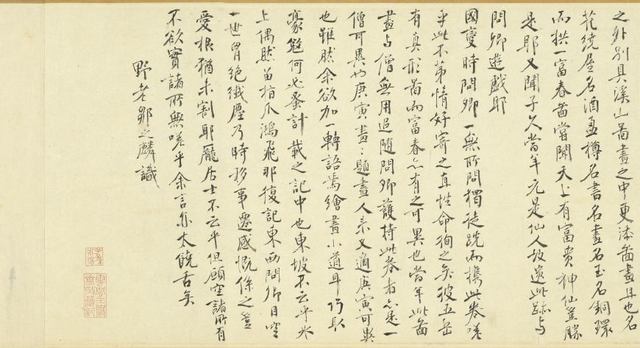 之外別具溪山圖畫之中更添圖畫且也名
花繞屋名酒盈樽名書名畫名玉名銅環
而拱一富春圖嘗聞天上有富貴神仙豈勝
是耶又聞子久當年元是仙人故遺此跡与
問卿遊戲耶
國變時問卿一無所問獨徒跣而攜此卷嗟
乎此不第情好寄之直性命狥之矣彼五岳
有真形圖而富春亦有之可異也當年此圖
畫与僧無用追隨問卿護持此卷者亦是一
僧可異也庚寅畫題畫人來又適庚寅可異
也雖然余欲加一轉語焉繪畫小道耳巧取
豪奪何必蚤計載之記中也東坡不云乎冰
上偶然留指爪鴻飛那復記東西問卿目空
一世胷絕纖塵乃時移事遷感慨係之豈
愛根猶未割耶龐居士不云乎但願空諸所有
不欲實諸所無嗟乎余言亦太饒舌矣
野老鄒之麟識